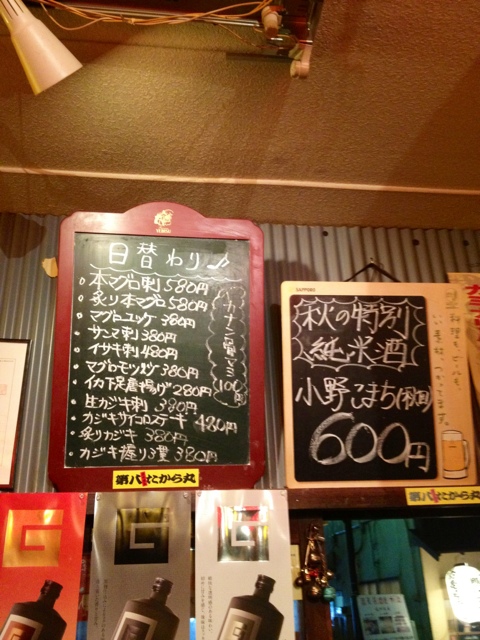 日替わり♪
本マグロ刺 580円
炙り本マグロ 580円
マグロユッケ 380円
サンマ刺 380円
イサキ刺 480円
マグロモツ煮 380円
イカ下足唐揚げ 280円
生ガキ刺 380円
カジキサイコロステーキ 480円
炙りカジキ 380円
カジキ握り3貫 380円
100円
第八たから丸
SAPPORO
秋の特別
純米酒
小野こまち(秋田)
600円
第八たから丸
G
G
G